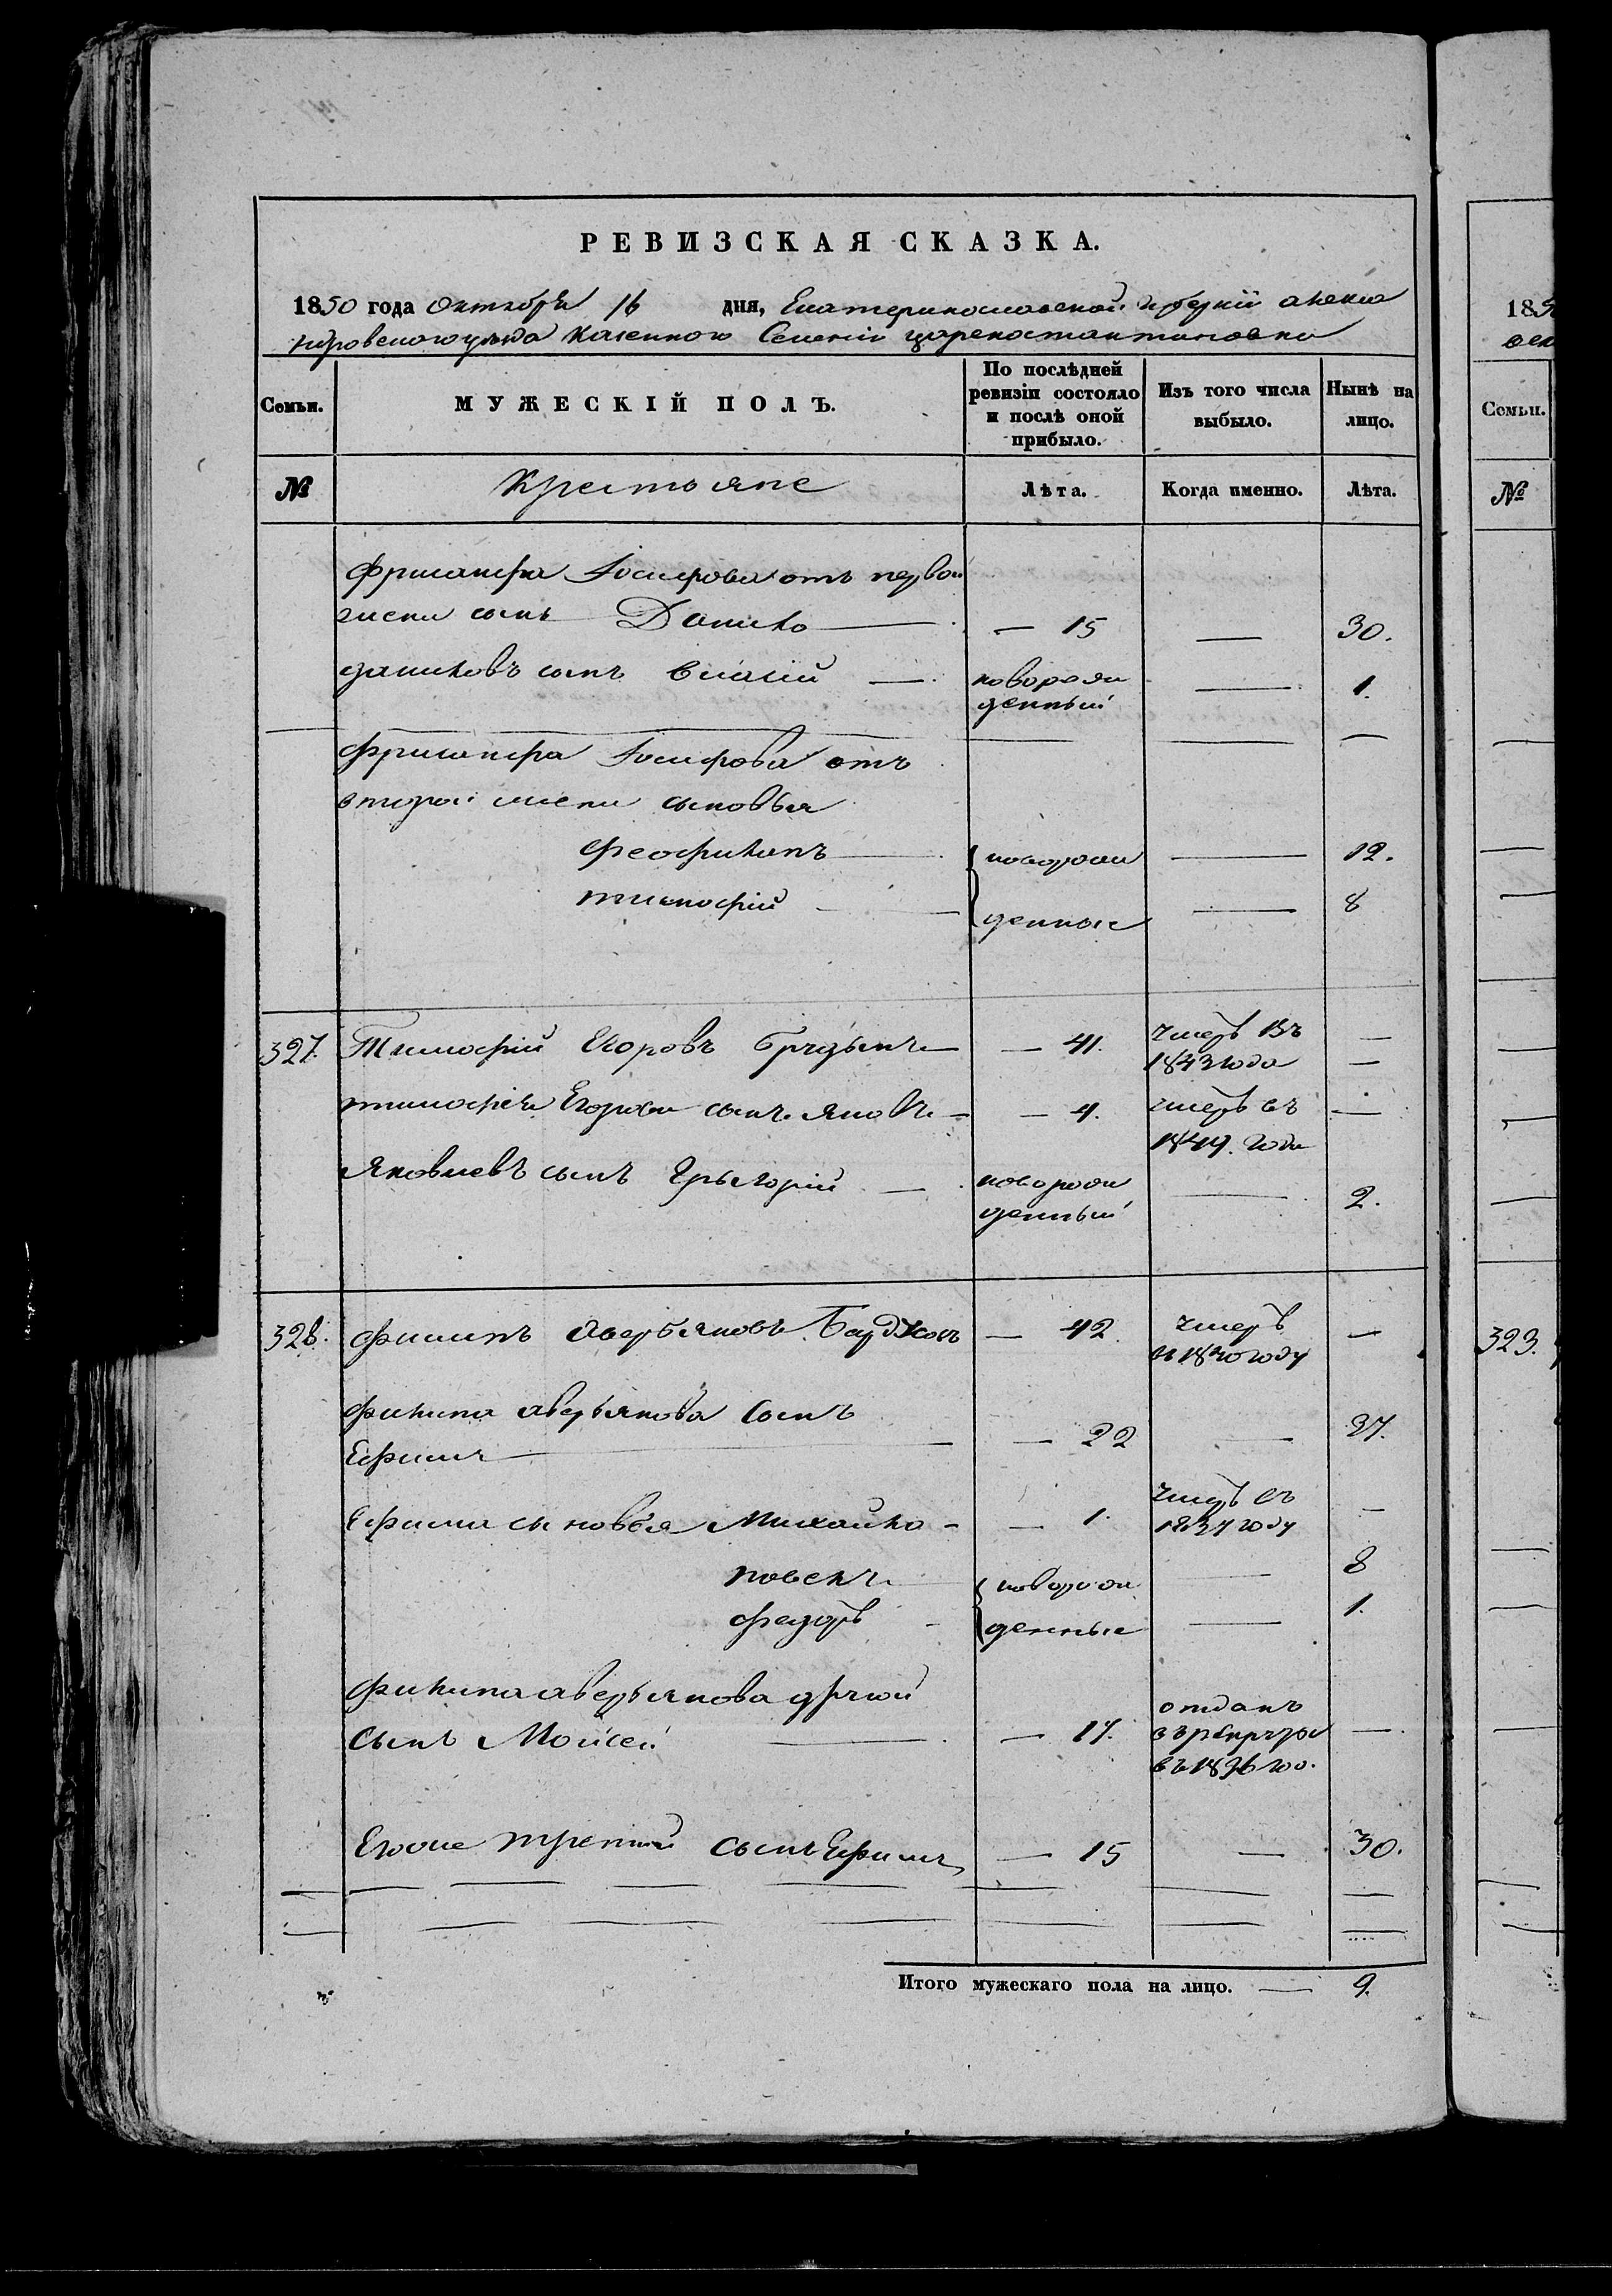 РЕВИЗСКАЯ СКАЗКА.
1850 года Октября 16 дня, Екатеринославской губернiи алекса
ндровского уѣзда казенного Селенiя цареконстантиновки
Семьи.
МУЖЕСКІЙ ПОЛЪ.
По послѣдней ревизіи состояло и послѣ оной прибыло.
Изъ того числа выбыло.
Нынѣ на лицо.
№
Крестьяне
Лѣта.
Когда именно.
Лѣта.
Іосифова отъ первой
жени сынъ Данило — 15 — 30.
даниловъ сынъ — новорож
денный — 1.
Іосифова отъ
второй жени сыновья
Феофиланъ — новорож — 12.
тимофій — денные — 8
327. Тимофій Егоровъ — 41. умеръ въ
1843 года —
тимофея Егорова сынъ яковъ — 4. умеръ въ —
1849. года
Яковлевъ сынъ Грыгорій — новорож
денный — 2.
328. филипъ Аверьяновъ — 42. умеръ
въ 1840 году —
филипа аверьянова Сынъ
Ефимъ — 22 — 37.
Ефима сыновья Михайло — 1. умеръ въ
1837 году —
новорож — 8
федоръ — денные — 1.
филипа аверьянова другой
Сынъ Мойсей — 17. отданъ
въ рекруты
въ 1836 го. —
Егоже третий Сынъ Ефимъ — 15 — 30.
Итого мужескаго пола на лицо. — 9.
185
Семьи.
№
323.